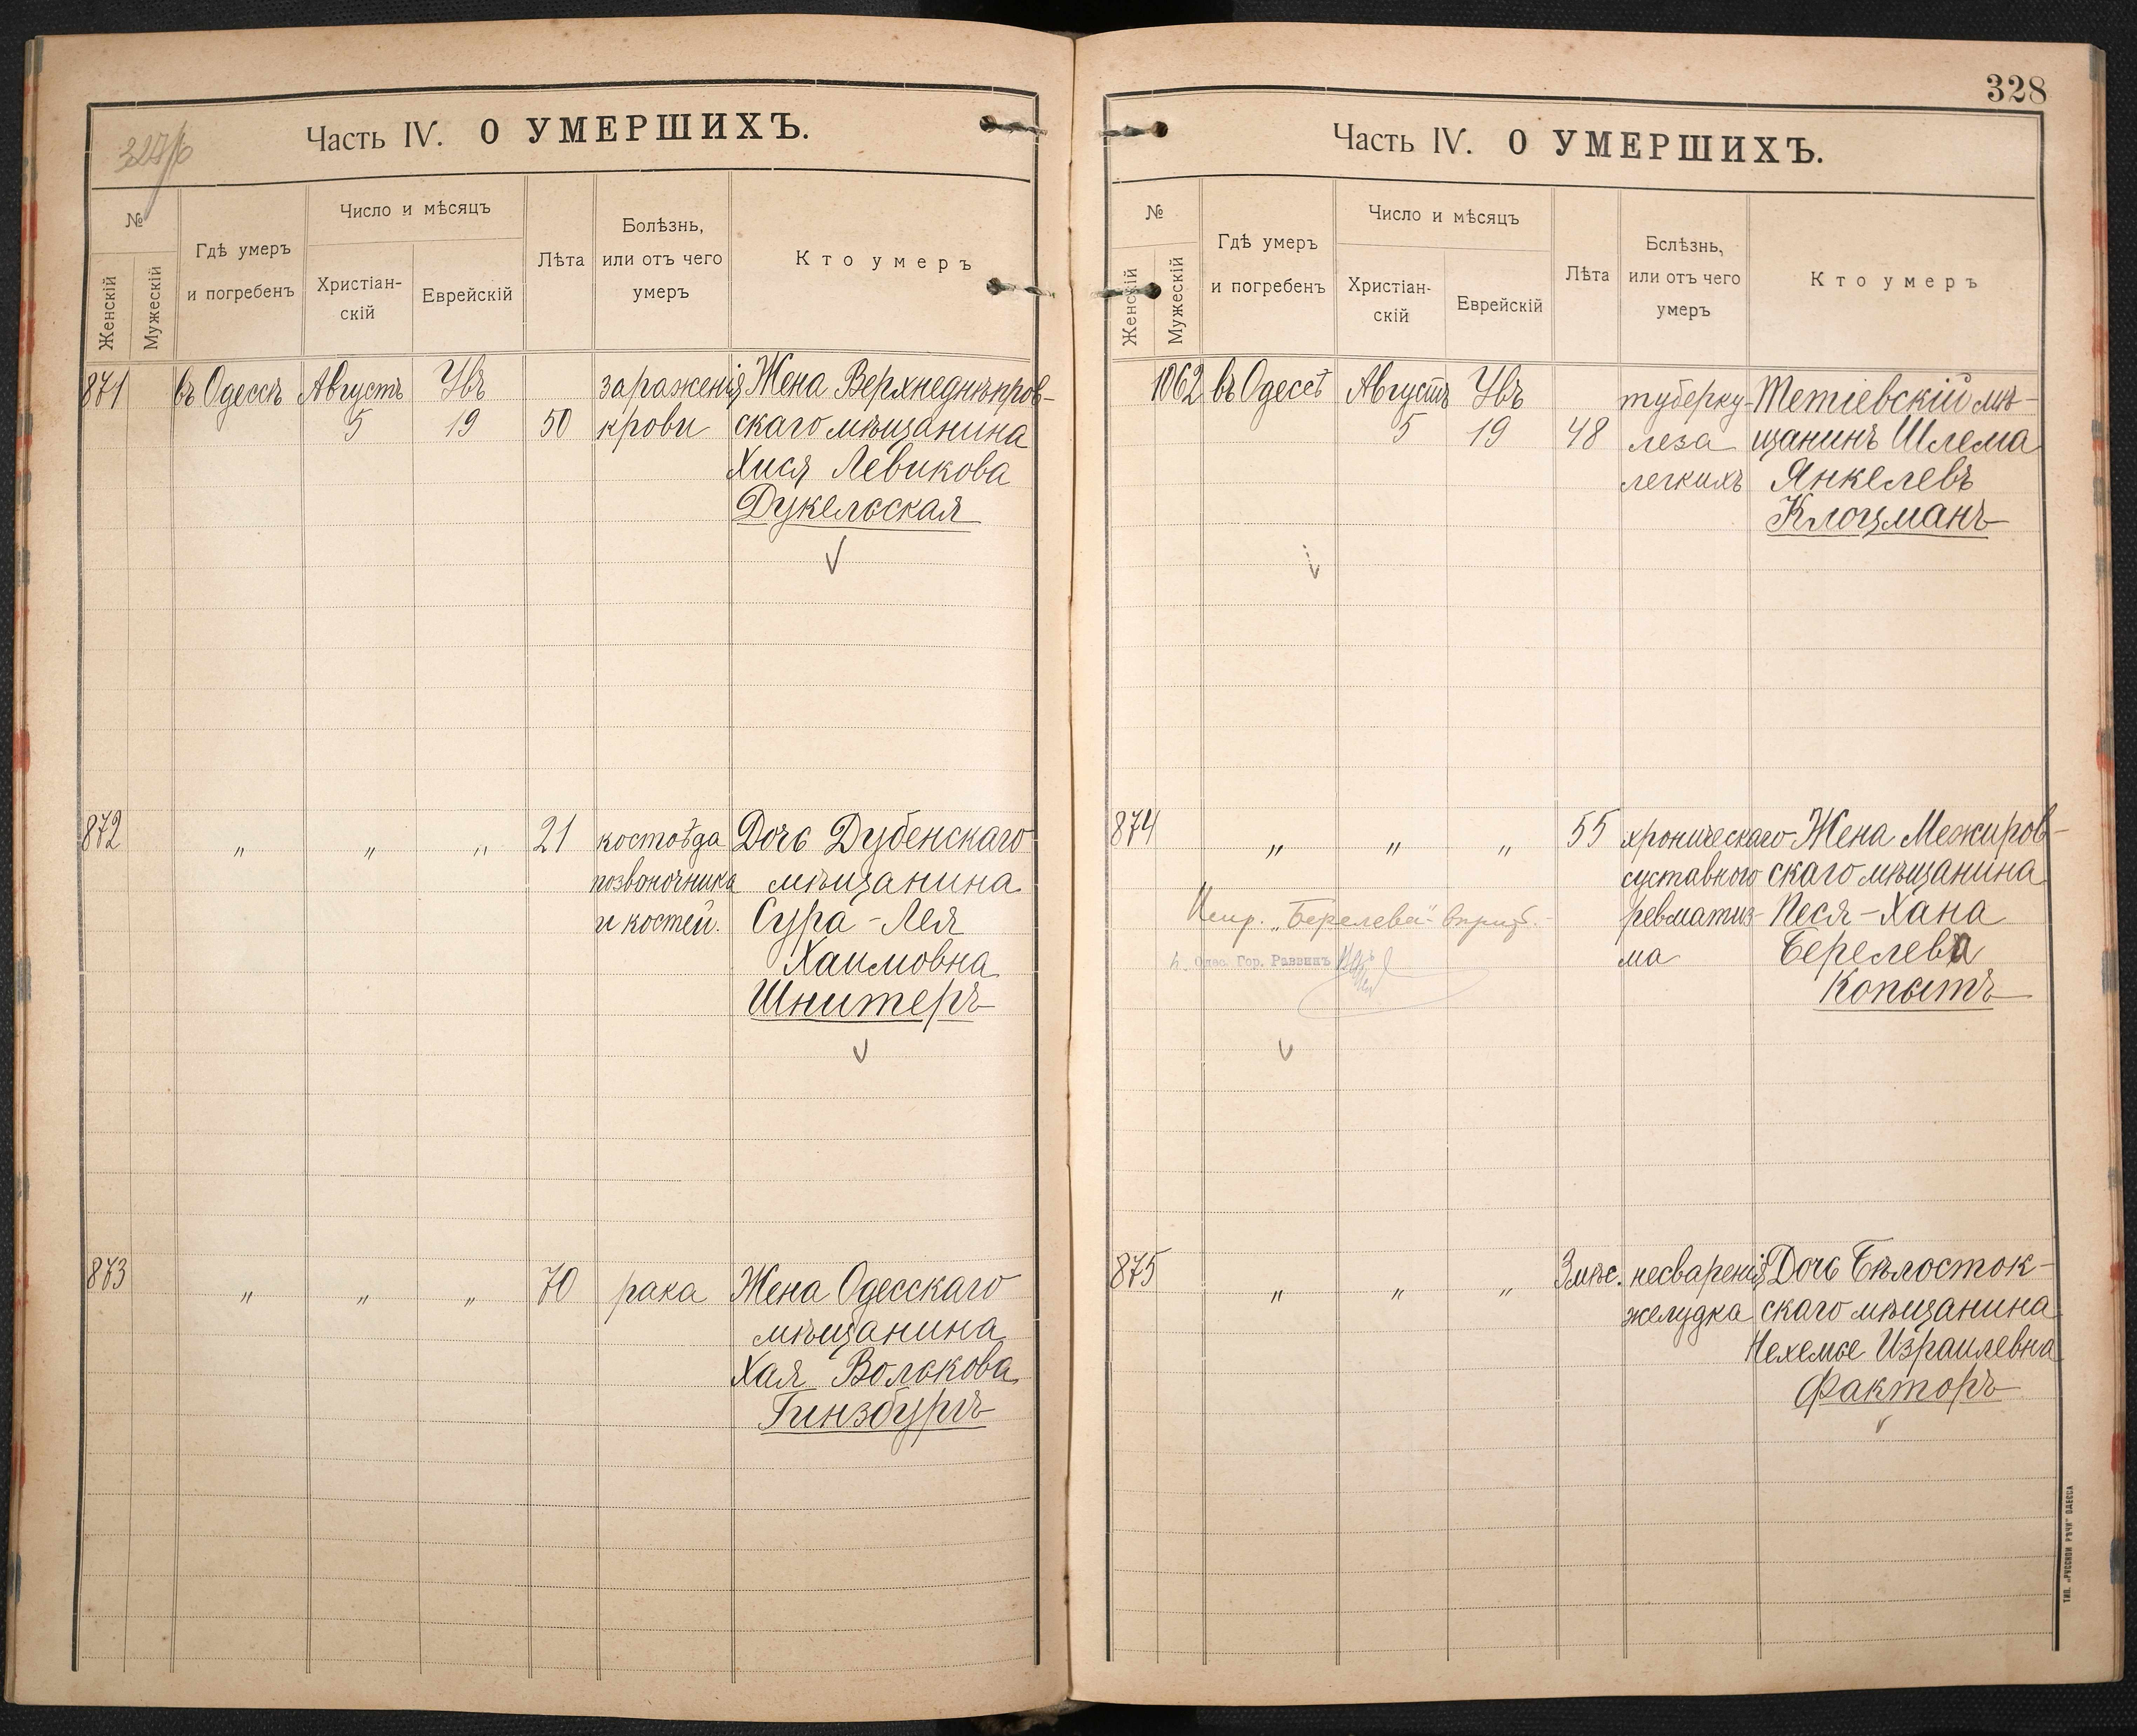 327/б
Часть IV. О УМЕРШИХЪ.
№
Женскій
Мужескій
Гдѣ умеръ
и погребенъ
Число и мѣсяцъ
Христіан-
скій
Еврейскій
Лѣта
Болѣзнь,
или отъ чего
умеръ
Кто умеръ
871 въ Одессѣ Августъ Увъ зараженія Жена Верхнеднѣпров-
5 19 50 крови скаго мѣщанина
Хися Левикова
Дукельская
872 „ „ „ 21 костоѣда Дочь Дубенскаго
позвоночника мѣщанина
и костей. Сура-Лея
Хаимовна
Шнитеръ
873 „ „ „ 70 рака Жена Одесскаго
мѣщанина
Хая Волькова
Гинзбургъ
328
Часть IV. О УМЕРШИХЪ.
№
Женскій
Мужескій
Гдѣ умеръ
и погребенъ
Число и мѣсяцъ
Христіан-
скій
Еврейскій
Лѣта
Бслѣзнь,
или отъ чего
умеръ
Кто умеръ
1062 въ Одессѣ Августъ Увъ туберку- Тетіевскій мѣ-
5 19 48 леза щанинъ Шлема
легкихъ Янкелевъ
Клоцманъ
874 „ „ „ 55 хроническаго Жена Межиров-
суставного скаго мѣщанина
ревматиз- Песя-Хана
ма Берелева
Копытъ
„Берелева"
Одес. Гор. Раввинъ
875 „ „ „ 3 мѣс. несваренія Дочь Бѣлосток-
желудка скаго мѣщанина
Нехемье Израилевна
Факторъ
ТИП. „РУССКОЙ РѢЧИ" ОДЕССА